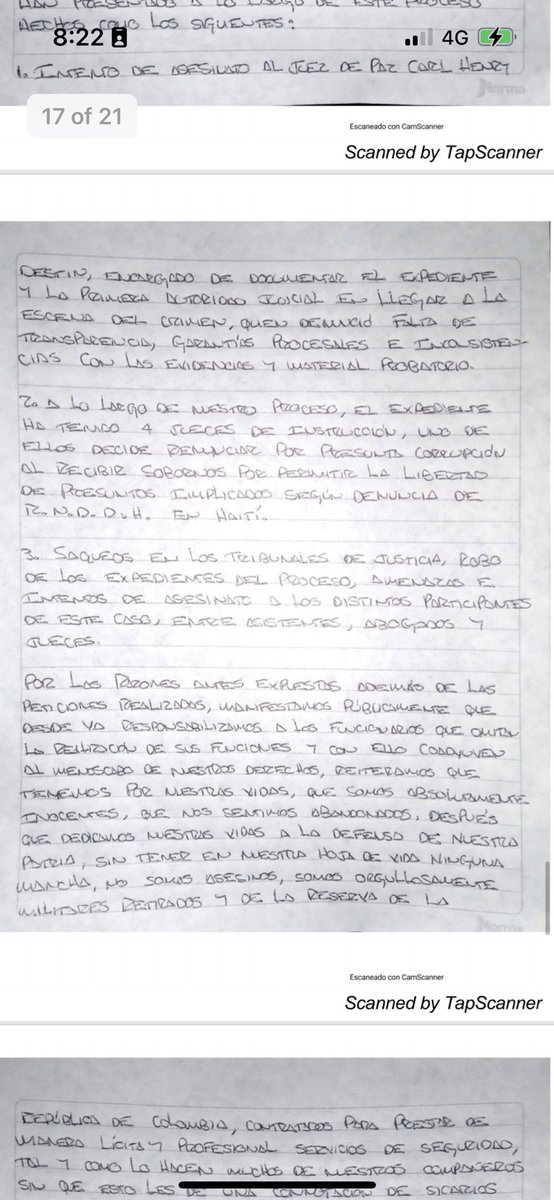 HAN PRESENTADO A LO LARGO DE ESTE PROCESO
HECHOS COMO LOS SIGUIENTES:
8:22
4G
1. INTENTO DE ASESINATO AL JUEZ DE PAZ CARL HENRY
Norma
17 of 21
Escaneado con CamScanner
Scanned by TapScanner
DESTIN, ENCARGADO DE DOCUMENTAR EL EXPEDIENTE
Y LA PRIMERA AUTORIDAD JUDICIAL EN LLEGAR A LA
ESCENA DEL CRIMEN, QUIEN DENUNCIÓ FALTA DE
TRANSPARENCIA, GARANTÍAS PROCESALES E INCONSISTEN-
CIAS CON LAS EVIDENCIAS Y MATERIAL PROBATORIO.
2. A LO LARGO DE NUESTRO PROCESO, EL EXPEDIENTE
HA TENIDO 4 JUECES DE INSTRUCCIÓN, UNO DE
ELLOS DECIDE RENUNCIAR POR PRESUNTA CORRUPCIÓN
AL RECIBIR SOBORNOS POR PERMITIR LA LIBERTAD
DE PRESUNTOS IMPLICADOS SEGÚN DENUNCIA DE
R.N.D.D.H. EN HAITÍ.
3. SAQUEOS EN LOS TRIBUNALES DE JUSTICIA, ROBO
DE LOS EXPEDIENTES DEL PROCESO, AMENAZAS E
INTENTOS DE ASESINATO A LOS DISTINTOS PARTICIPANTES
DE ESTE CASO, ENTRE ASISTENTES, ABOGADOS Y
JUECES.
POR LAS RAZONES ANTES EXPUESTAS ADEMÁS DE LAS
PETICIONES REALIZADAS, MANIFESTAMOS PÚBLICAMENTE QUE
DESDE YA RESPONSABILIZAMOS A LOS FUNCIONARIOS QUE OMITAN
LA REALIZACIÓN DE SUS FUNCIONES Y CON ELLO COADYUVEN
AL MENOSCABO DE NUESTROS DERECHOS, REITERAMOS QUE
TENEMOS POR NUESTRAS VIDAS, QUE SOMOS ABSOLUTAMENTE
INOCENTES, QUE NOS SENTIMOS ABANDONADOS, DESPUÉS
QUE DEDICAMOS NUESTRAS VIDAS A LA DEFENSA DE NUESTRA
PATRIA, SIN TENER EN NUESTRA HOJA DE VIDA NINGUNA
MANCHA, NO SOMOS ASESINOS, SOMOS ORGULLOSAMENTE
MILITARES RETIRADOS Y DE LA RESERVA DE LA
Norma
Escaneado con CamScanner
Scanned by TapScanner
REPÚBLICA DE COLOMBIA, CONTRATADOS PARA PRESTAR DE
MANERA LÍCITA Y PROFESIONAL SERVICIOS DE SEGURIDAD,
TAL Y COMO LO HACEN MUCHOS DE NUESTROS COMPAÑEROS
SIN QUE ESTO LES DE UNA CONNOTACIÓN DE SICARIOS